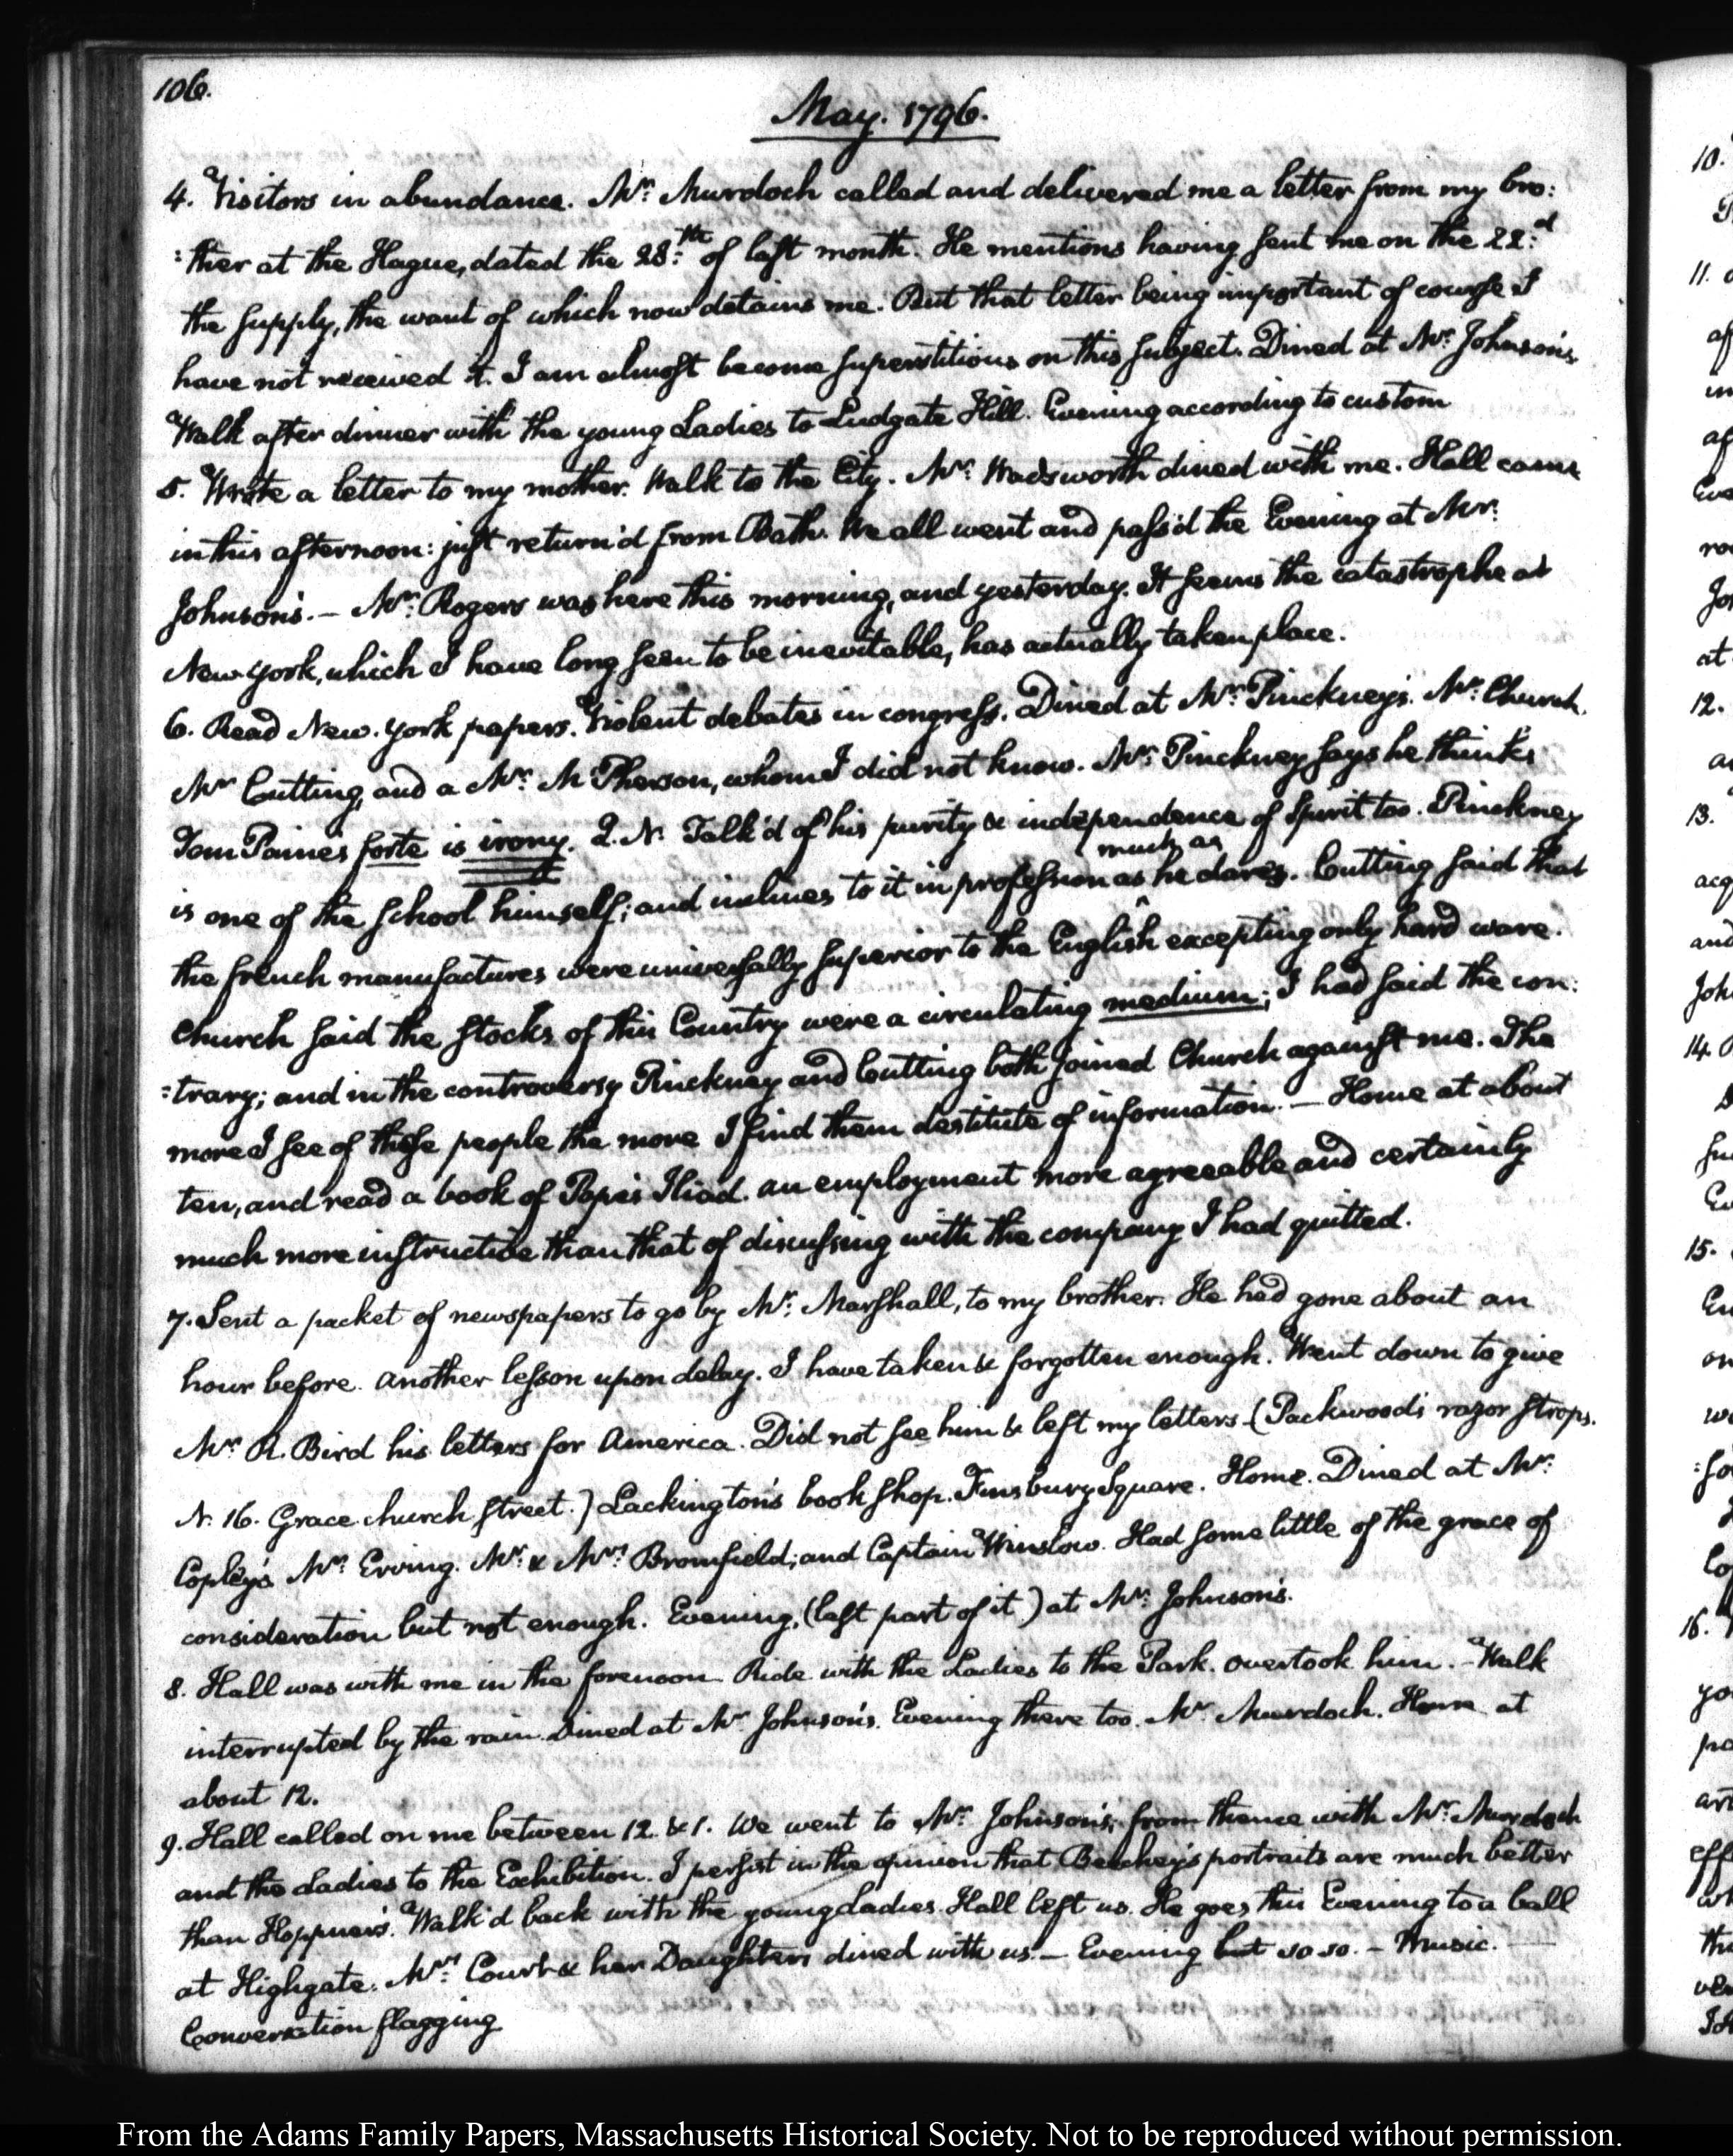 106.
May. 1796.
4. Visitors in abundance. Mr: Murdoch called and delivered me a letter from my bro:
:ther at the Hague, dated the 28:th of last month. He mentions having sent me on the 22:d
the supply, the want of which now detains me. But that letter being important of course I
have not received it. I am almost become superstitious on this subject. Dined at Mr: Johnson's.
Walk after dinner with the young Ladies to Ludgate Hill. Evening according to custom
5. Wrote a letter to my mother. Walk to the City. Mr: Wadsworth dined with me. Hall came
in this afternoon: just return'd from Bath. We all went and pass'd the Evening at Mr:
Johnson's. — Mr: Rogers was here this morning, and yesterday. It seems the catastrophe at
New York, which I have long seen to be inevitable, has actually taken place.
6. Read New. York papers. Violent debates in congress. Dined at Mr: Pinckney's. Mr: Church.
Mr Cutting, and a Mr: McPherson, whom I did not know. Mr: Pinckney says he thinks
Tom Paine's forte is irony. Q.N. Talk'd of his purity & independence of Spirit too. Pinckney
is one of the school himself; and inclines to it in profession as much as he dares. Cutting said that
the french manufactures were universally superior to the English excepting only hard ware.
Church said the stocks of this Country were a circulating medium; I had said the con:
:trary; and in the controversy Pinckney and Cutting both joined Church against me. The
more I see of these people the more I find them destitute of information. — Home at about
ten, and read a book of Pope's Iliad. an employment more agreeable and certainly
much more instructive than that of discussing with the company I had quitted.
7. Sent a packet of newspapers to go by Mr: Marshall, to my brother. He had gone about an
hour before. another lesson upon delay. I have taken & forgotten enough. Went down to give
Mr R. Bird his letters for America. Did not see him & left my letters (Packwood's razor strops.
N. 16. Grace church street.) Lackington's book shop. Finsbury Square. Home. Dined at Mr:
Copley's Mr: Erving. Mr: & Mrs: Bromfield; and Captain Winslow. Had some little of the grace of
consideration but not enough. Evening, (last part of it) at Mr: Johnson's.
8. Hall was with me in the forenoon Ride with the Ladies to the Park. overtook him. — Walk
interrupted by the rain. Dined at Mr Johnson's. Evening there too. Mr. Murdoch. Home at
about 12.
9. Hall called on me between 12 & 1. We went to Mr: Johnson's; from thence with Mr: Murdoch
and the Ladies to the Exhibition. I persist in the opinion that Beechey's portraits are much better
than Hoppner's. Walk'd back with the young Ladies. Hall left us. He goes this Evening to a ball
at Highgate. Mrs: Court & her Daughters dined with us. — Evening but so so. — Music. —
Conversation flagging
From the Adams Family Papers, Massachusetts Historical Society. Not to be reproduced without permission.